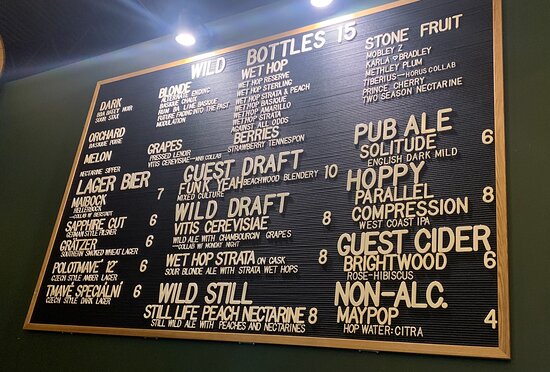 WILD BOTTLES 15
DARK
BBA DAISY NOIR
SOUR STOUT
ORCHARD
BASQUE POIRE
MELON
NECTARINE SIPPER
BLONDE
ALTERNATE ENDING
BASQUE CHALK
RUM BA L'ANE BASQUE
FUTURE FADING INTO THE PAST
MODULATION
GRAPES
PRESSED LENOIR
VITIS CEREVISIAE-WNB COLLAB
WET HOP
WET HOP RESERVE
WET HOP STERLING
WET HOP STRATA & PEACH
WET HOP BASQUE
WET HOP AMARILLO
WET HOP STRATA
AGAINST ALL ODDS
BERRIES
STRAWBERRY TENNESPON
STONE FRUIT
MOBLEY Z
KARLA ♥ BRADLEY
METHLEY PLUM
TIBERIUS-HORUS COLLAB
PRINCE CHERRY
TWO SEASON NECTARINE
LAGER BIER
MAIBOCK 7
HOLLERBOCK
-COLLAB W/ BIERSTADT
SAPPHIRE CUT 6
GERMAN STYLE PILSNER
GRÄTZER 6
SOUTHERN SMOKED WHEAT LAGER
POLOTMAVÉ 12° 6
CZECH STYLE AMBER LAGER
TMAVÉ SPECIÁLNÍ 6
CZECH STYLE DARK LAGER
GUEST DRAFT
FUNK YEAH BEACHWOOD BLENDERY 10
MIXED CULTURE
WILD DRAFT
VITIS CEREVISIAE 8
WILD ALE WITH CHAMBOURCIN GRAPES
-COLLAB W/ MONDAY NIGHT
WET HOP STRATA ON CASK 8
SOUR BLONDE ALE WITH STRATA WET HOPS
WILD STILL
STILL LIFE PEACH NECTARINE 8
STILL WILD ALE WITH PEACHES AND NECTARINES
PUB ALE
SOLITUDE 6
ENGLISH DARK MILD
HOPPY
PARALLEL
COMPRESSION 6
WEST COAST IPA
GUEST CIDER
BRIGHTWOOD 6
ROSE-HIBISCUS
NON-ALC.
MAYPOP 4
HOP WATER: CITRA